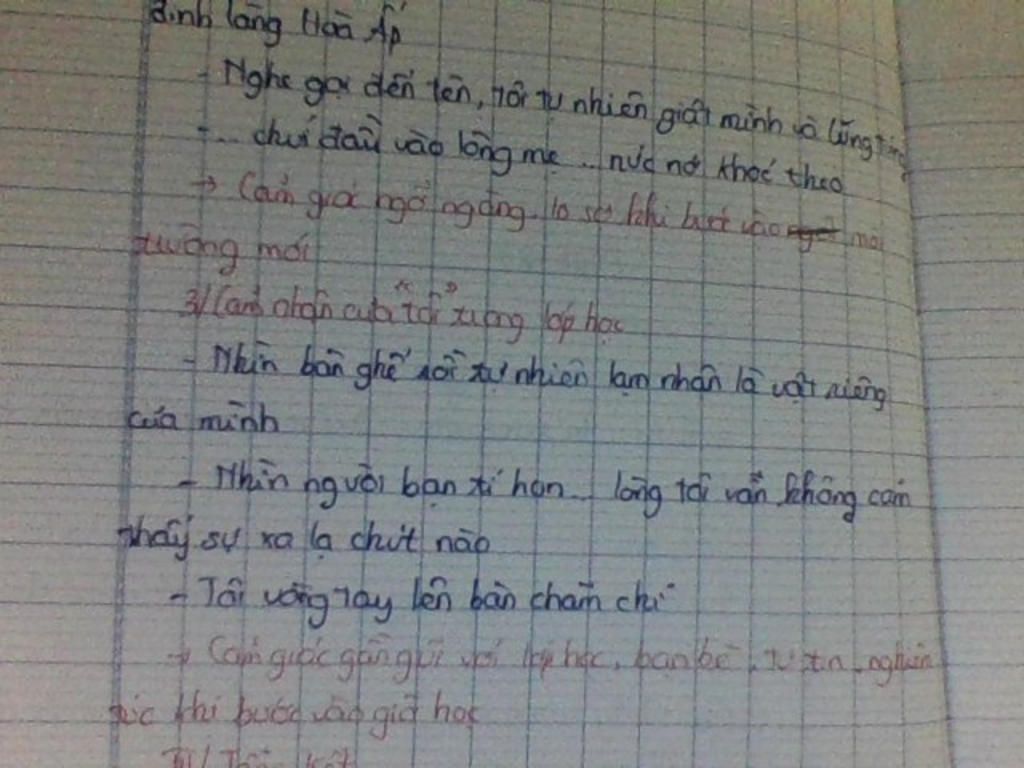 đình làng Hoà Ấp
- Nghe gọi đến tên, tôi tự nhiên giật mình và lúng túng
- ... chúi đầu vào lòng mẹ ... nức nở khóc theo
→ Cảm giác ngỡ ngàng, lo sợ khi bước vào môi
trường mới
3/ Cảm nhận của "tôi" trong lớp học
- Nhìn bàn ghế rồi tự nhiên lạm nhận là vật riêng
của mình
- Nhìn người bạn tí hon... lòng tôi vẫn không cảm
thấy sự xa lạ chút nào
- Tôi vòng tay lên bàn chăm chỉ
→ Cảm giác gần gũi với lớp học, bạn bè, tự tin, nghiêm
túc khi bước vào giờ học
III/ Tổng kết